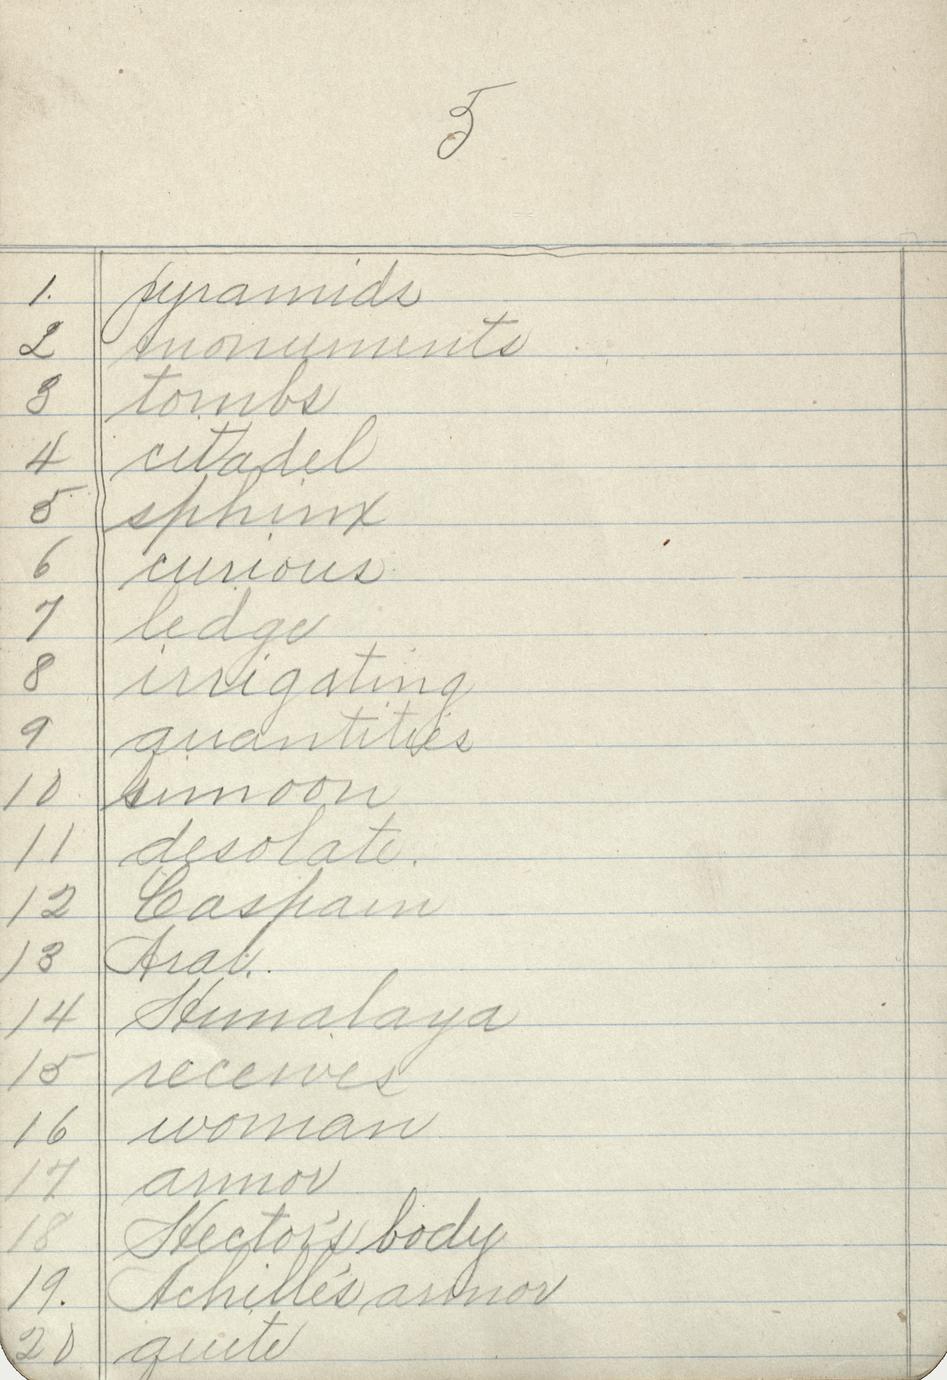 5
1. pyramids
2 monuments
3 tombs
4 citadel
5 sphinx
6 curious
7 ledge
8 irrigating
9 quantities
10 simoon
11 desolate.
12 Caspain
13 Aral.
14 Himalaya
15 receives
16 woman
17 armor
18 Hector's body
19. Achille's armor
20 quite